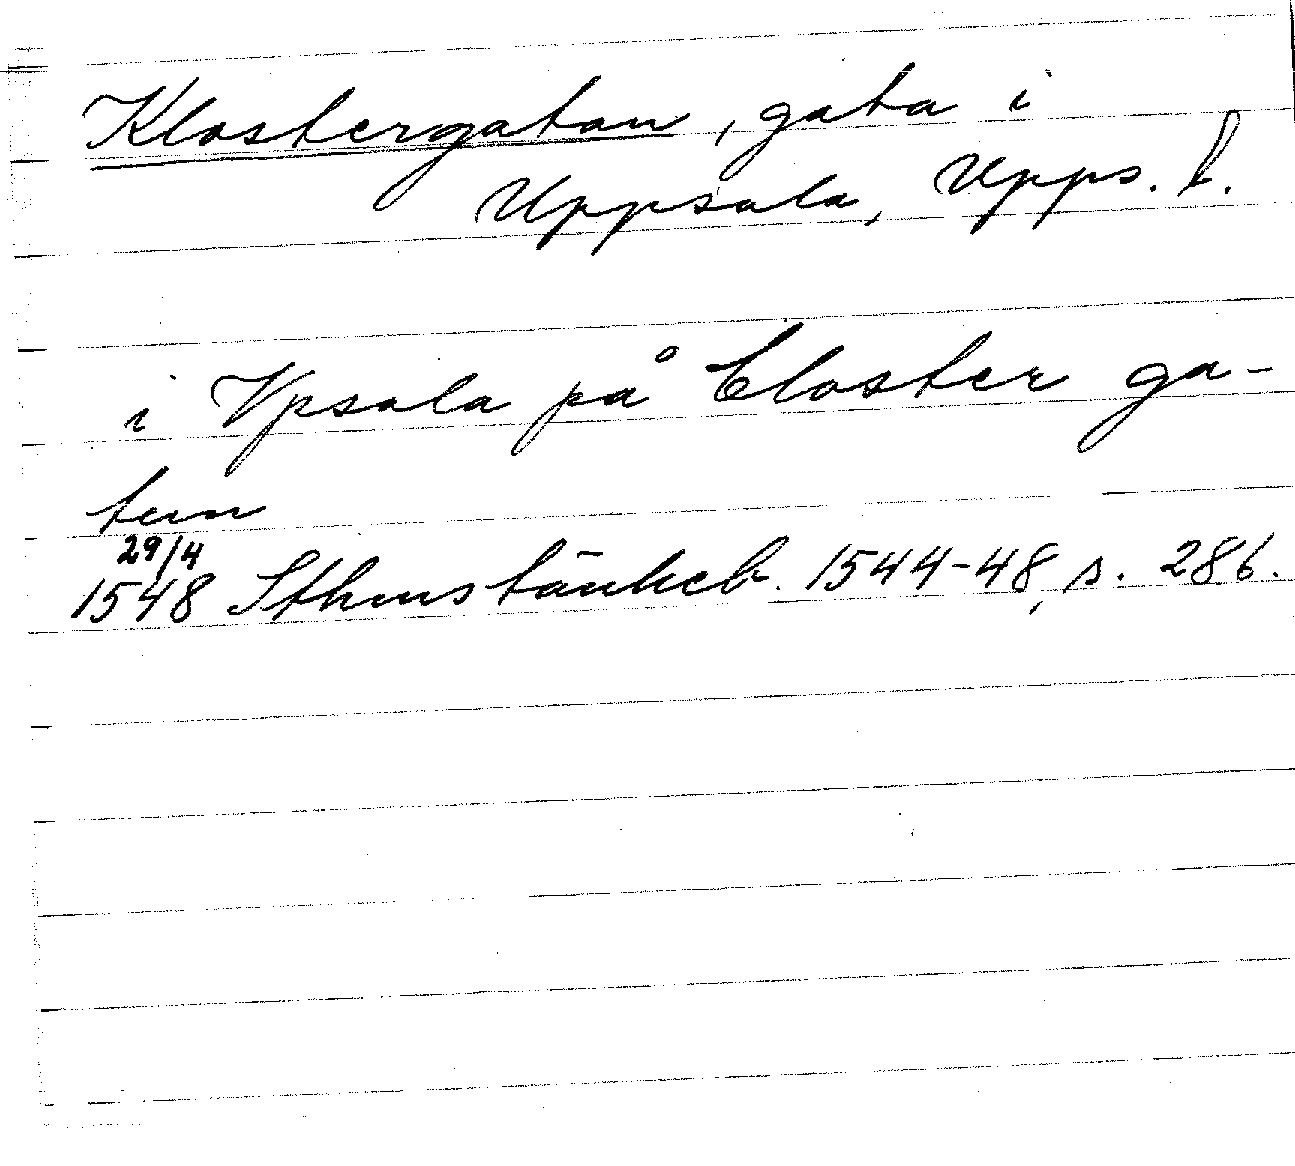 Klostergatan, gata i
Uppsala, Upps. l.
i Vpsala på Closter ga-
tun
29/4
1548 Sthms tänkeb. 1544-48, s. 286.